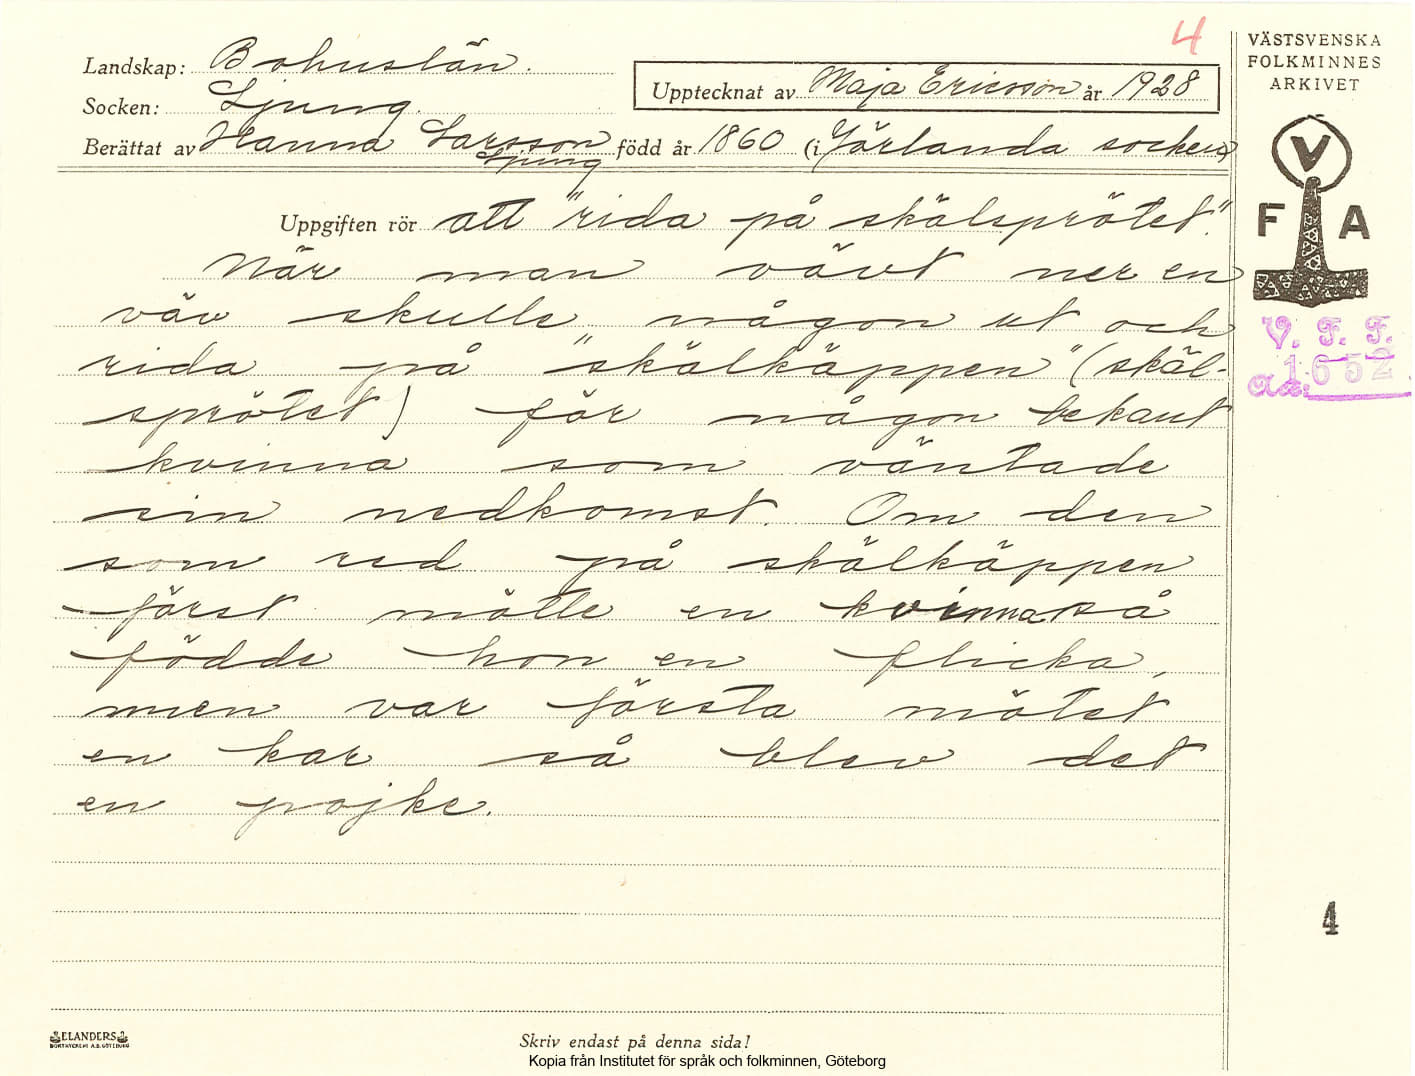 4
VÄSTSVENSKA
FOLKMINNES
ARKIVET
Landskap: Bohuslän.
Socken: Ljung.
Upptecknat av Maja Ericsson år 1928
Berättat av Hanna Larsson född år 1860 (i Jörlanda socken)
Ljung
V
F A
Uppgiften rör att "rida på skälsprötet".
När man vävt ner en
väv skulle någon ut och
rida på "skälkäppen" (skäl-
sprötet) för någon bekant
kvinna som väntade
sin nedkomst. Om den
som red på skälkäppen
först mötte en kvinna så
födde hon en flicka,
men var första mötet
en kar så blev det
en pojke.
V. F. F.
1652
4
ELANDERS
BOKTRYCKERI A.B. GÖTEBORG
Skriv endast på denna sida!
Kopia från Institutet för språk och folkminnen, Göteborg